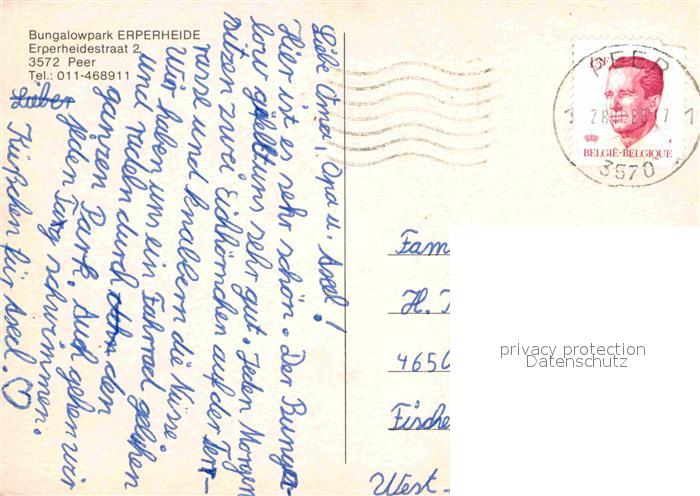 Bungalowpark ERPERHEIDE
Erperheidestraat 2
3572 Peer
Tel.: 011-468911
Liebe Oma, Opa u. Axel!
Hier ist es sehr schön. Der Bunga-
low gefällt uns sehr gut. Jeden Morgen
sitzen zwei Eichhörnchen auf der Terr-
rasse und knabbern die Nüsse
Wir haben uns ein Fahrrad geliehen
und radeln durch den
ganzen Park. Auch gehen wir
jeden Tag schwimmen.
Küßchen für Axel. ♡
PEER
3570
BELGIË-BELGIQUE
Fam
H.
4650
Fische
West-
privacy protection
Datenschutz